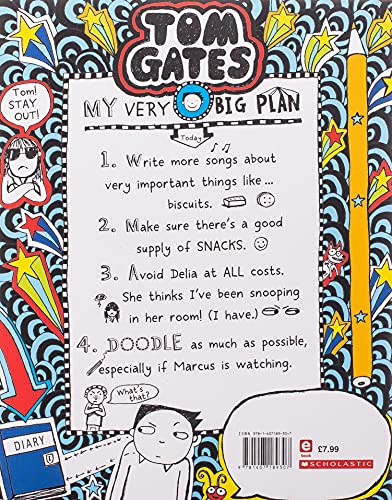 TOM
GATES
MY VERY BIG PLAN
Today
Tom!
STAY
OUT!
1. Write more songs about
very important things like ...
biscuits.
2. Make sure there's a good
supply of SNACKS.
3. Avoid Delia at ALL costs.
She thinks I've been snooping
in her room! (I have.)
4. DOODLE as much as possible,
especially if Marcus is watching.
What's
that?
DIARY
e
book
£7.99
SCHOLASTIC